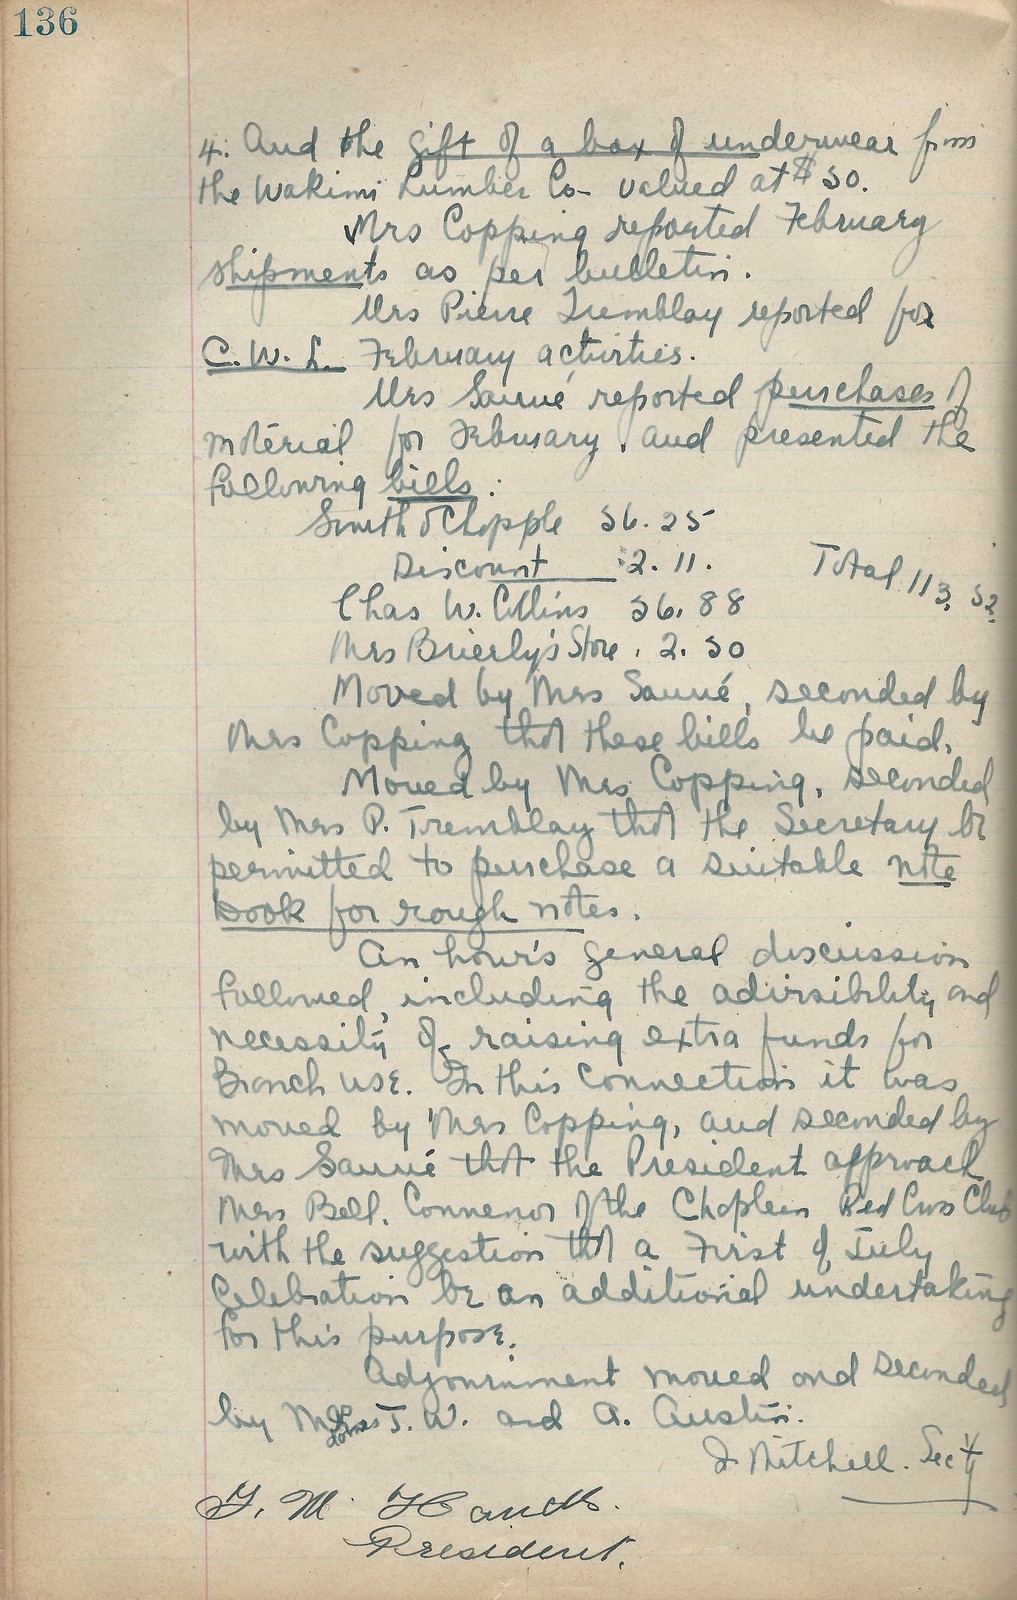 136
4. And the gift of a box of underwear from
the Wakimi Lumber Co- valued at $50.
Mrs Copping reported February
shipments as per bulletin.
Mrs Pierre Tremblay reported for
C.W.L. February activities.
Mrs Sauvé reported purchases of
material for February, and presented the
following bills:
Smith & Chapple 56.25
Discount 2.11. Total 113.52
Chas W. Collins 56.88
Mrs Brierly's Store. 2.50
Moved by Mrs Sauvé, seconded by
Mrs Copping that these bills be paid.
Moved by Mrs Copping, seconded
by Mrs P. Tremblay that the Secretary be
permitted to purchase a suitable note
book for rough notes.
An hour's general discussion
followed, including the advisibility and
necessity of raising extra funds for
Branch use. In this connection it was
moved by Mrs Copping, and seconded by
Mrs Sauvé that the President approach
Mrs Bell. Convenor of the Chapleau Red Cross Club
with the suggestion that a First of July
Celebration be an additional undertaking
for this purpose.
Adjournment moved and seconded
by T.W. and A. Austin.
J. Mitchell. Sec'ty
President.